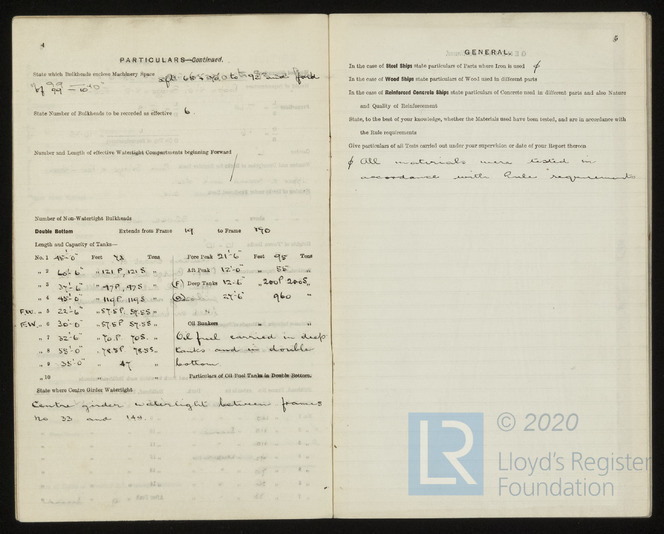 4
PARTICULARS—Continued.
State which Bulkheads enclose Machinery Space
State Number of Bulkheads to be recorded as effective : 6
Number and Length of effective Watertight Compartments beginning Forward
Number of Non-Watertight Bulkheads
Double Bottom Extends from Frame 14 to Frame 190
Length and Capacity of Tanks—
No. 1 45'-0" Feet Tons
„ 2 60'-6" „ 121 P, 121 S „
„ 3 37'-6" „ 97P, 97S „
„ 4 45'-0" „ 119P 119S „
F.W. „ 5 22'-6" „ 57.5P 57.5S „
F.W. „ 6 30'-0" „ 57.5P 57.5S „
„ 7 32'-6" „ 70P 70S „
„ 8 55'-0" „ 78.5P 78.5S „
„ 9 35'-0" „ 47 „
„ 10 „ „
State where Centre Girder Watertight
Centre girder watertight between frames
No 33 and 144.
Fore Peak 21'-6" Feet 95 Tons
Aft Peak 12'-0" „ 55 „
(F) Deep Tanks 12'-6" „ 200P 200S „
27'-6" 960 „
Oil Bunkers „ „
Oil fuel carried in deep
tanks and in double
bottom
Particulars of Oil Fuel Tanks in Double Bottom.
5
GENERAL.
In the case of Steel Ships state particulars of Parts where Iron is used
In the case of Wood Ships state particulars of Wood used in different parts
In the case of Reinforced Concrete Ships state particulars of Concrete used in different parts and also Nature
and Quality of Reinforcement
State, to the best of your knowledge, whether the Materials used have been tested, and are in accordance with
the Rule requirements
Give particulars of all Tests carried out under your supervision or date of your Report thereon
All materials were tested in
accordance with Rules requirements
© 2020
LR
Lloyd's Register
Foundation